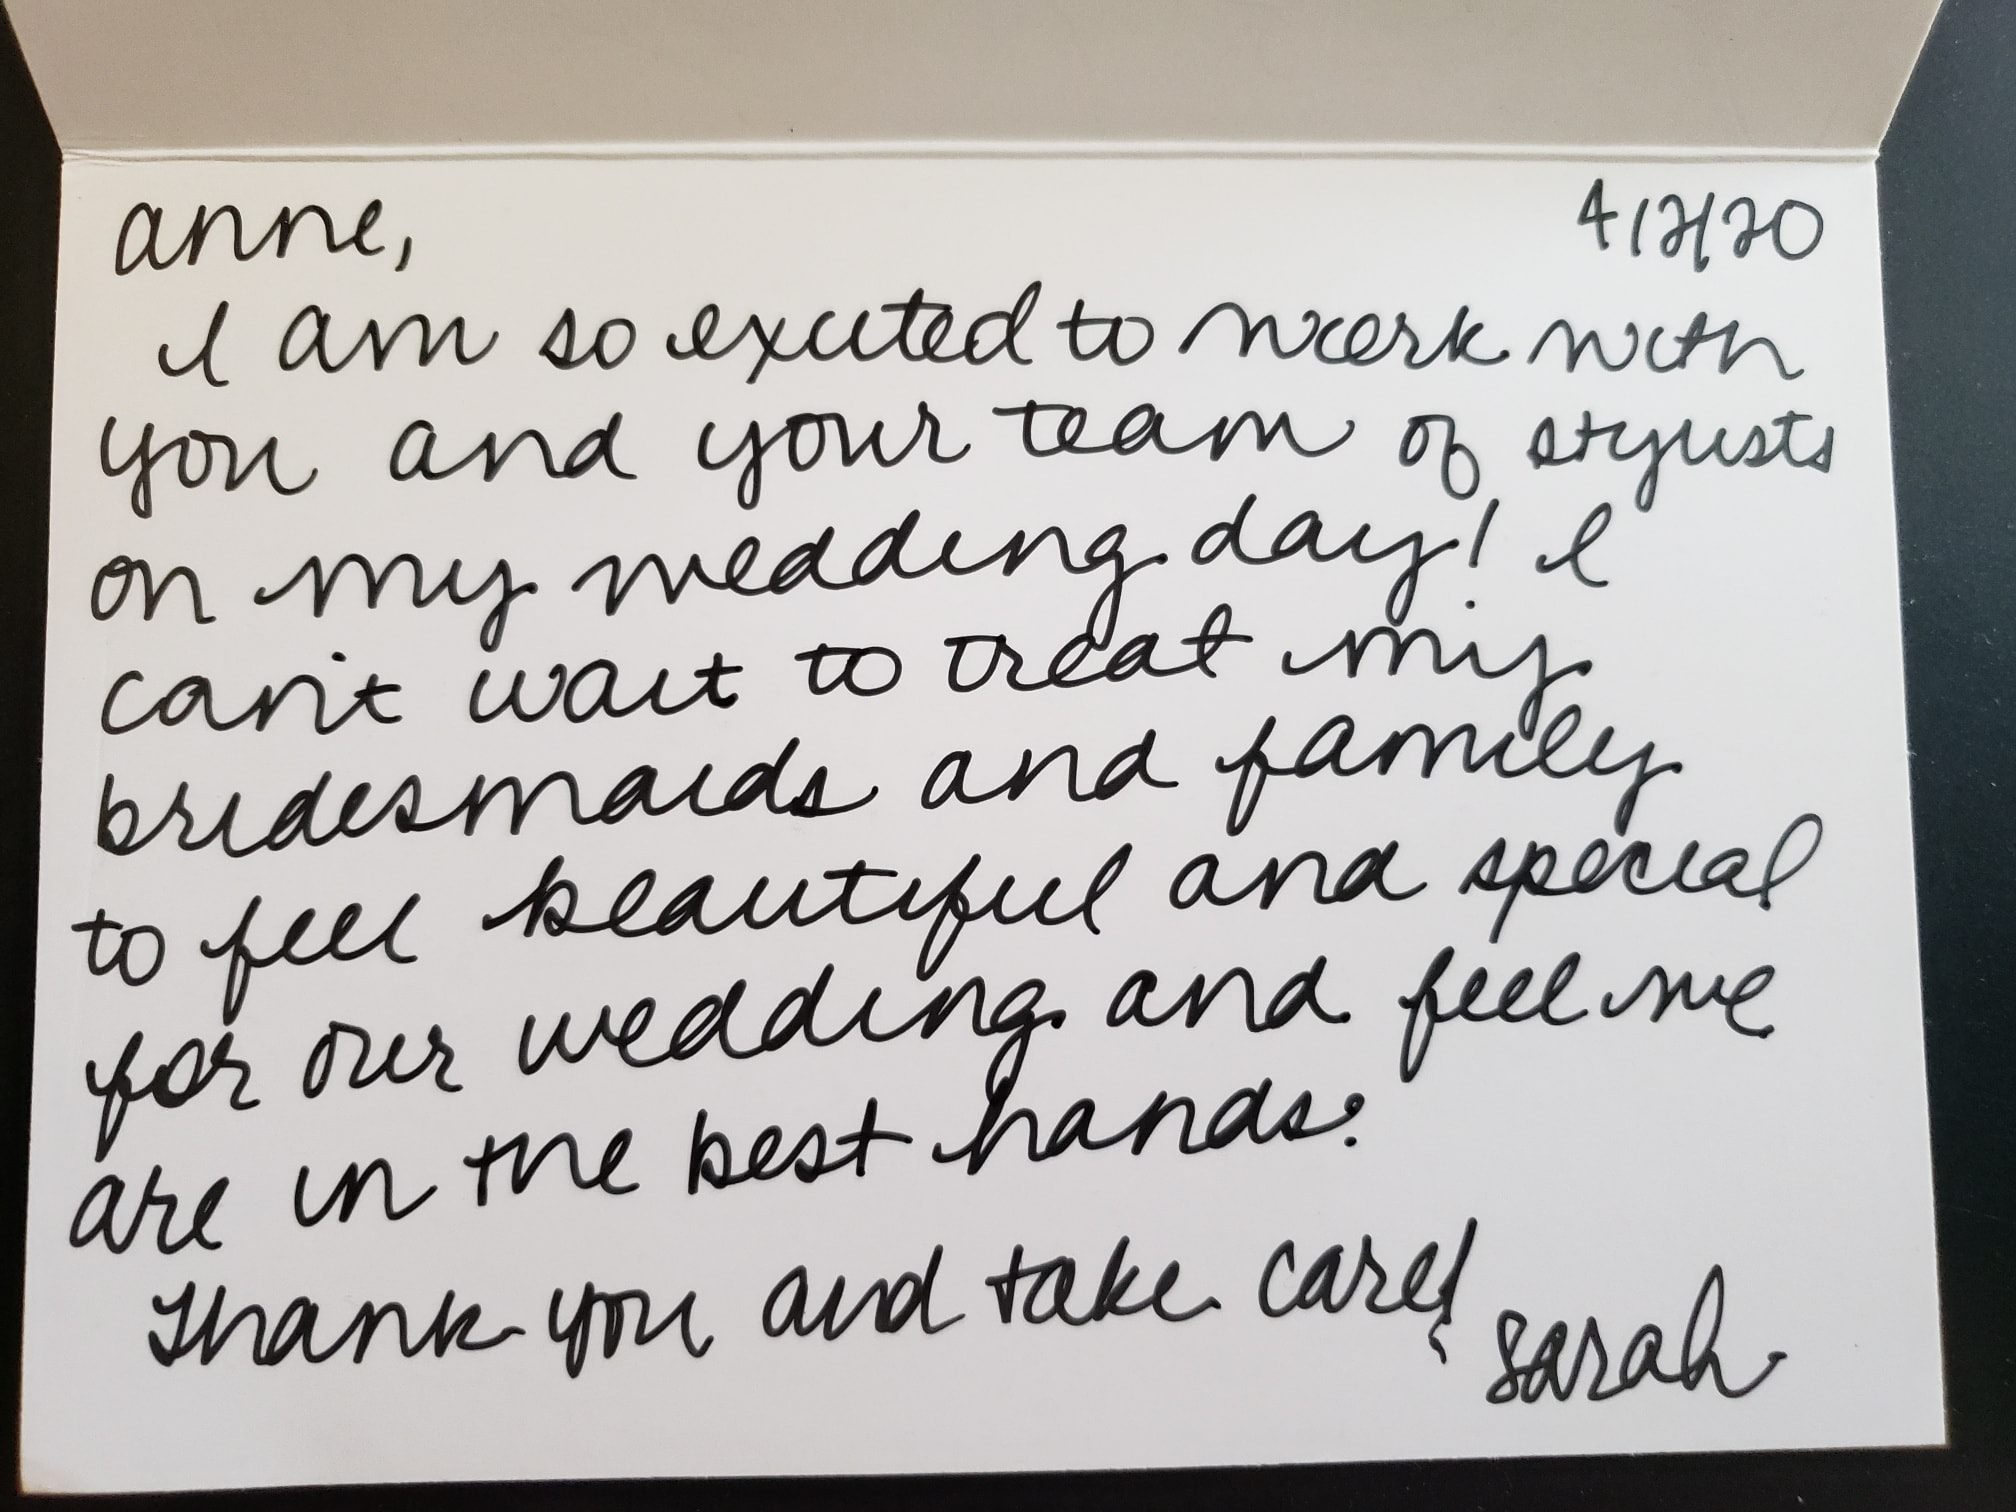 anne, 4/2/20
I am so excited to work with
you and your team of stylists
on my wedding day! I
can't wait to treat my
bridesmaids and family
to feel beautiful and special
for our wedding and feel we
are in the best hands.
Thank you and take care!
Sarah